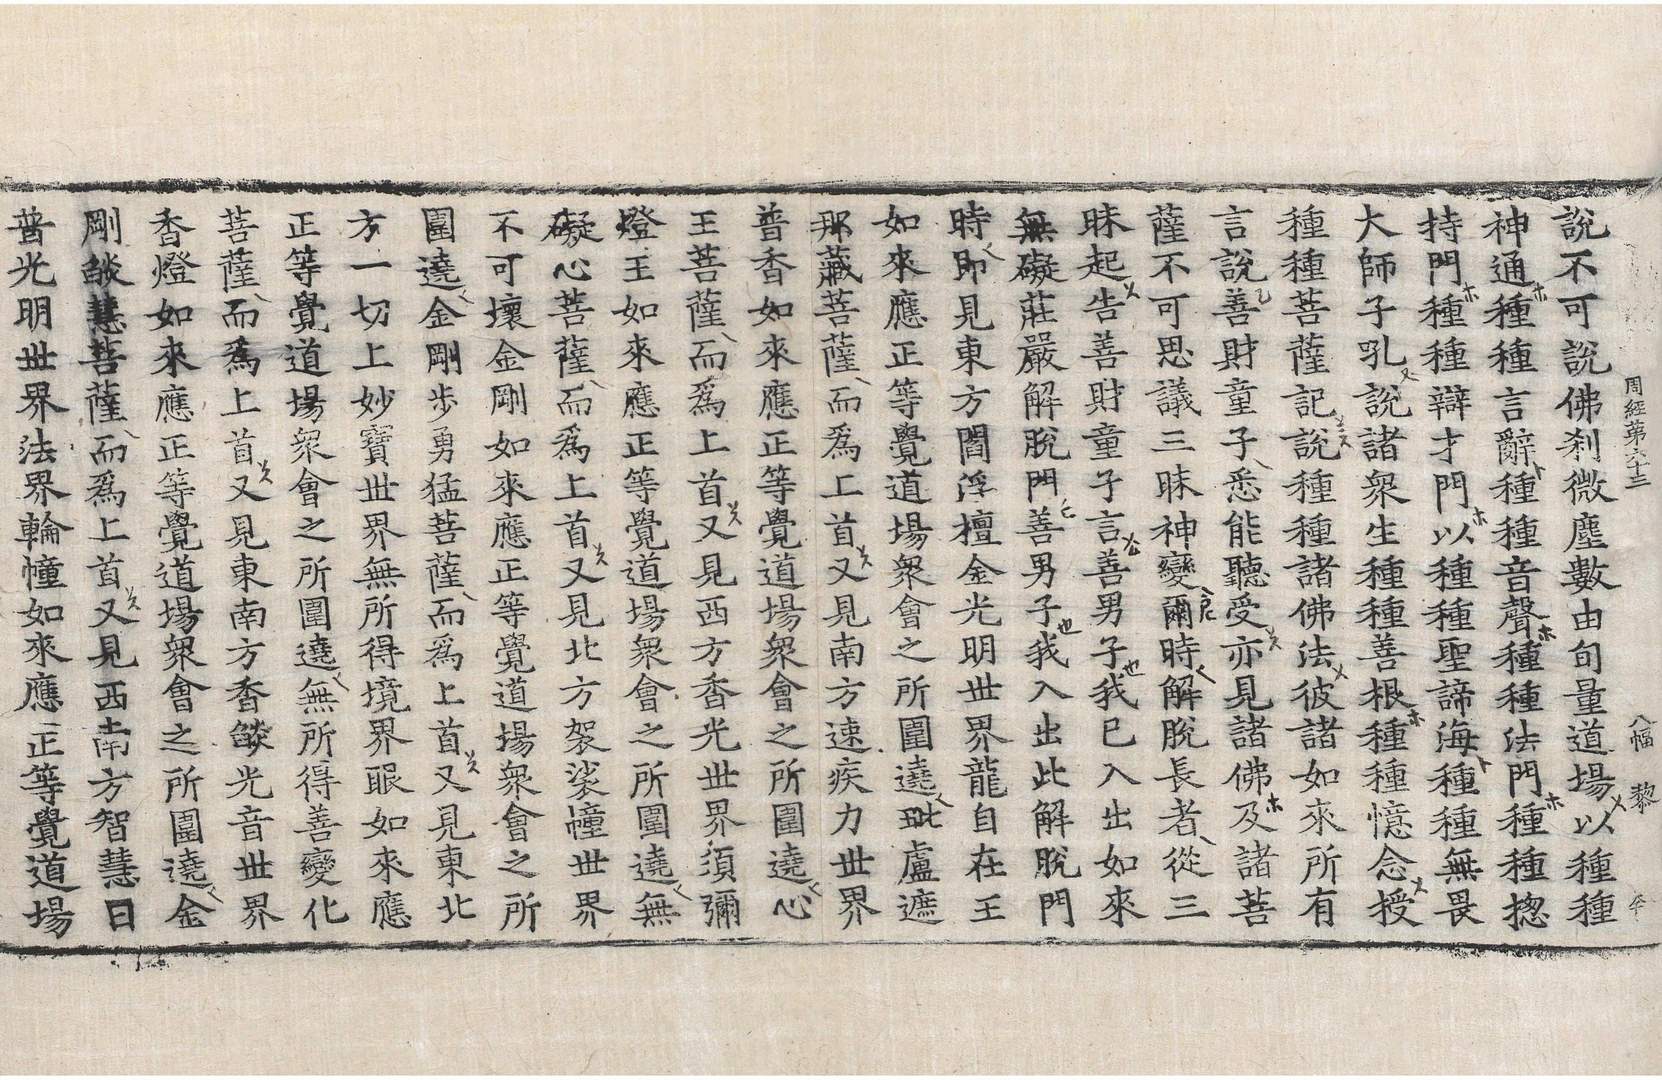 周經第六十三 八幅 黎
說不可說佛刹微塵數由旬量道場以種種
神通種種言辭種種音聲種種法門種種揔
持門種種辯才門以種種聖諦海種種無畏
大師子吼說諸衆生種種善根種種憶念授
種種菩薩記說種種諸佛法彼諸如來所有
言說善財童子悉能聽受亦見諸佛及諸菩
薩不可思議三昧神變爾時解脫長者從三
昧起告善財童子言善男子我已入出如來
無礙莊嚴解脫門善男子我入出此解脫門
時即見東方閻浮檀金光明世界龍自在王
如來應正等覺道場衆會之所圍遶毗盧遮
那藏菩薩而爲上首又見南方速疾力世界
普香如來應正等覺道場衆會之所圍遶心
王菩薩而爲上首又見西方香光世界須彌
燈王如來應正等覺道場衆會之所圍遶無
礙心菩薩而爲上首又見北方袈裟幢世界
不可壞金剛如來應正等覺道場衆會之所
圍遶金剛步勇猛菩薩而爲上首又見東北
方一切上妙寶世界無所得境界眼如來應
正等覺道場衆會之所圍遶無所得善變化
菩薩而爲上首又見東南方香燄光音世界
香燈如來應正等覺道場衆會之所圍遶金
剛燄慧菩薩而爲上首又見西南方智慧日
普光明世界法界輪幢如來應正等覺道場